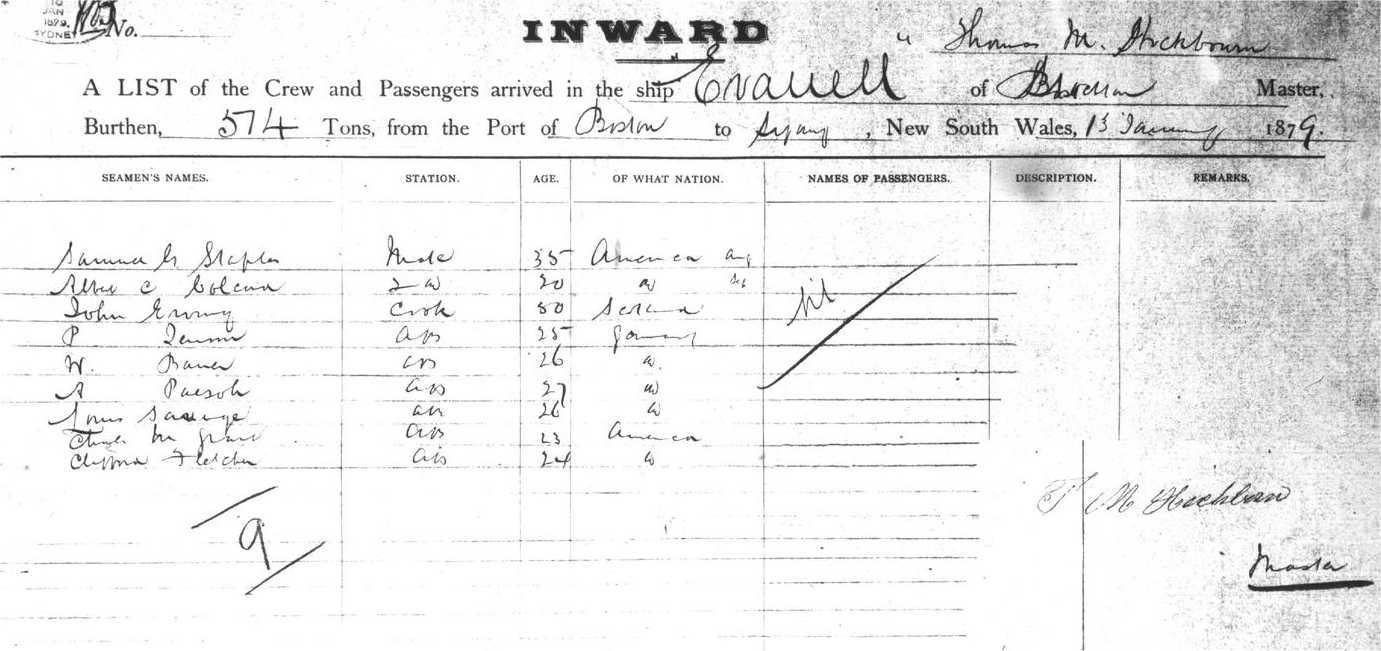 JAN
1879
SYDNEY
No.
INWARD
" Thomas M.
A LIST of the Crew and Passengers arrived in the ship Evanell of Boston Master,
Burthen, 574 Tons, from the Port of Boston to Sydney, New South Wales, 13 January 1879.
SEAMEN'S NAMES. STATION. AGE. OF WHAT NATION. NAMES OF PASSENGERS. DESCRIPTION. REMARKS.
Samuel G Staples Mate 35 America
Albert C 2 do 20 do
John Ewing Cook 50
P ABS 25 Germany
W. Bauer ABS 26 do
A ABS 27 do
Louis ABS 26 do
ABS 23 America
Clifford Fletcher ABS 24 do
Nil
9
T M
Master